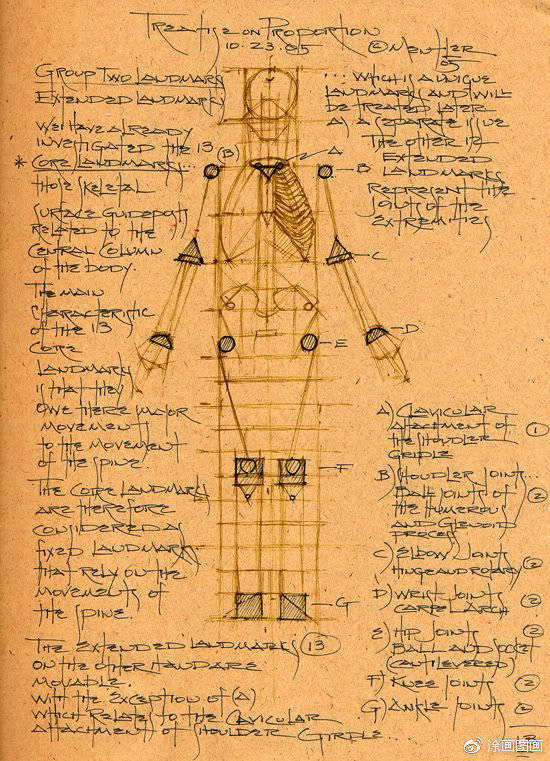 Treatise on Proportion
10.23.05
© Mentler
05
Group Two Landmarks
Extended Landmarks
We have already
investigated the 13
* Core Landmarks...
those skeletal
surface guideposts
related to the
central column
of the body.
The main
characteristic
of the 13
core
landmarks
is that they
owe there major
movement
to the movement
of the spine.
The core landmarks
are therefore
considered as
fixed landmarks
that rely on the
movements of
the spine.
The extended landmarks 13
on the other hand are
movable.
with the exception of (A)
which relate to the clavicular
attachment of shoulder girdle...
... which is a unique
landmark and will
be treated later
a separate issue
The other 12
extended
landmarks
represent the
joints of the
extremities
(B)
A
B
C
D
E
F
G
A) Clavicular
attachment of
the shoulder
girdle 1
B) Shoudler joints...
Ball joints of 2
the humerous
and glenoid
process
C) Elbow joints
hinge and rotary 2
D) Wrist joints 2
carpel arch
E) Hip joints 2
Ball and socket
(cantilevered)
F) Knee joints 2
G) Ankle joints 2
13
涂画图画